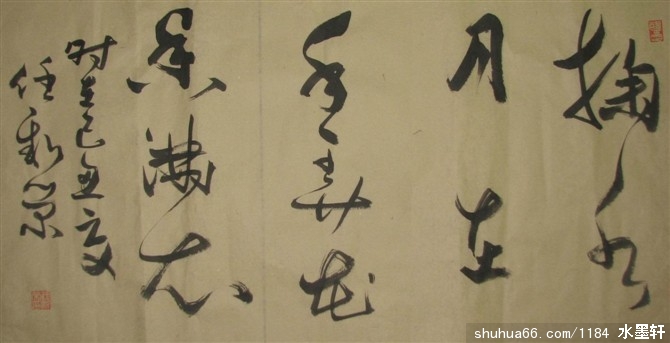 掬水
月在
手弄花
香满衣
时在己丑夏
任
shuhua66.com/1184 水墨轩